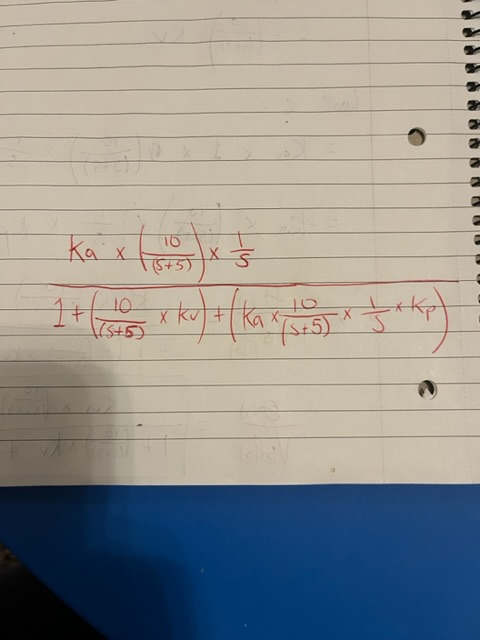 Ka × (10/(s+5)) × 1/s
1 + (10/(s+5) × Kv) + (Ka × 10/(s+5) × 1/s × Kp)